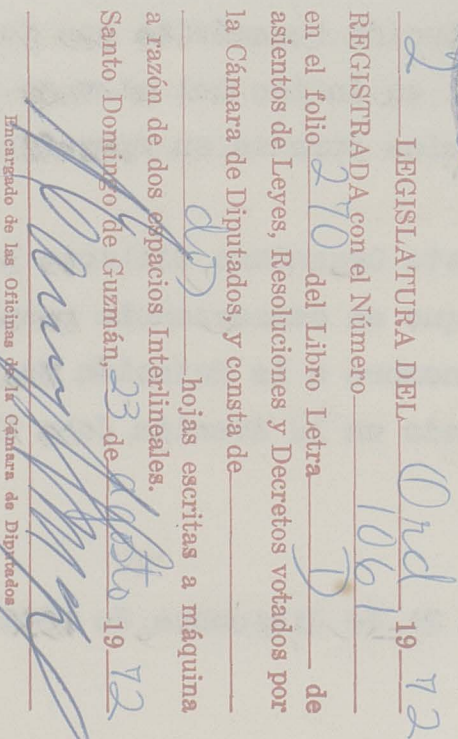 2 LEGISLATURA DEL Ord 1972
REGISTRADA con el Número 1061
en el folio 270 del Libro Letra D de
asientos de Leyes, Resoluciones y Decretos votados por
la Cámara de Diputados, y consta de
dos hojas escritas a máquina
a razón de dos espacios Interlineales.
Santo Domingo de Guzmán, 23 de agosto 1972
Encargado de las Oficinas de la Cámara de Diputados